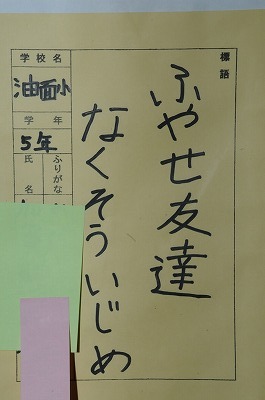 標語
ふやせ友達
なくそういじめ
学校名
油面小
学年
5年
ふりがな
氏名